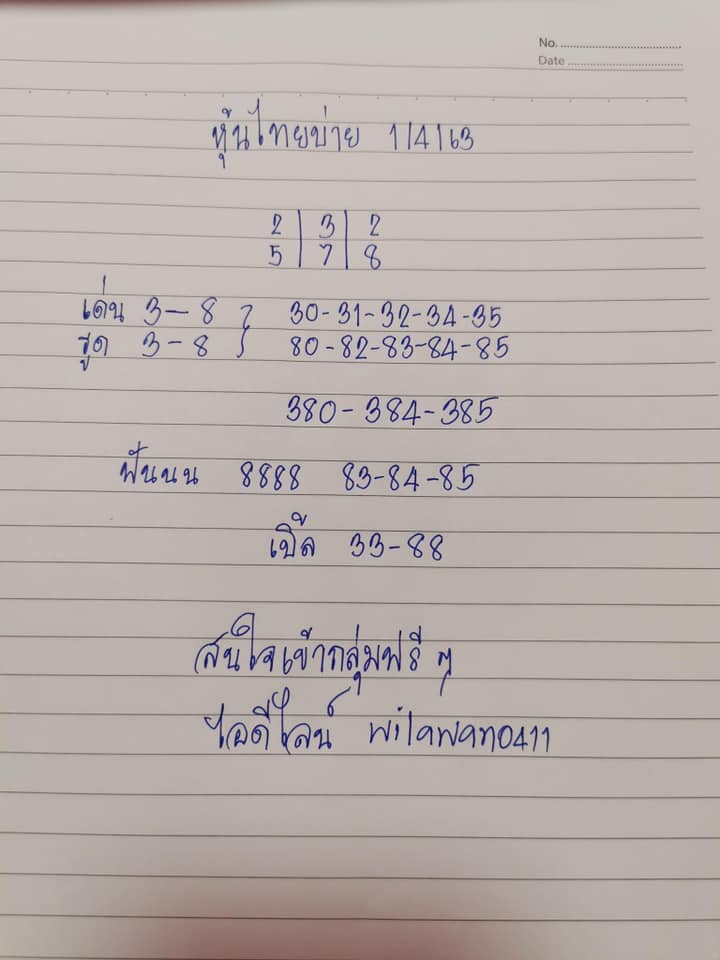 No. ........................................
Date ......................................
หุ้นไทยบ่าย 1/4/63
2 | 3 | 2
5 | 7 | 8
เด่น 3-8 } 30-31-32-34-35
รูด 3-8 } 80-82-83-84-85
380-384-385
ฟันนน 8888 83-84-85
เบิ้ล 33-88
สนใจเข้ากลุ่มฟรี ๆ
ไอดีไลน์ wilawan0411